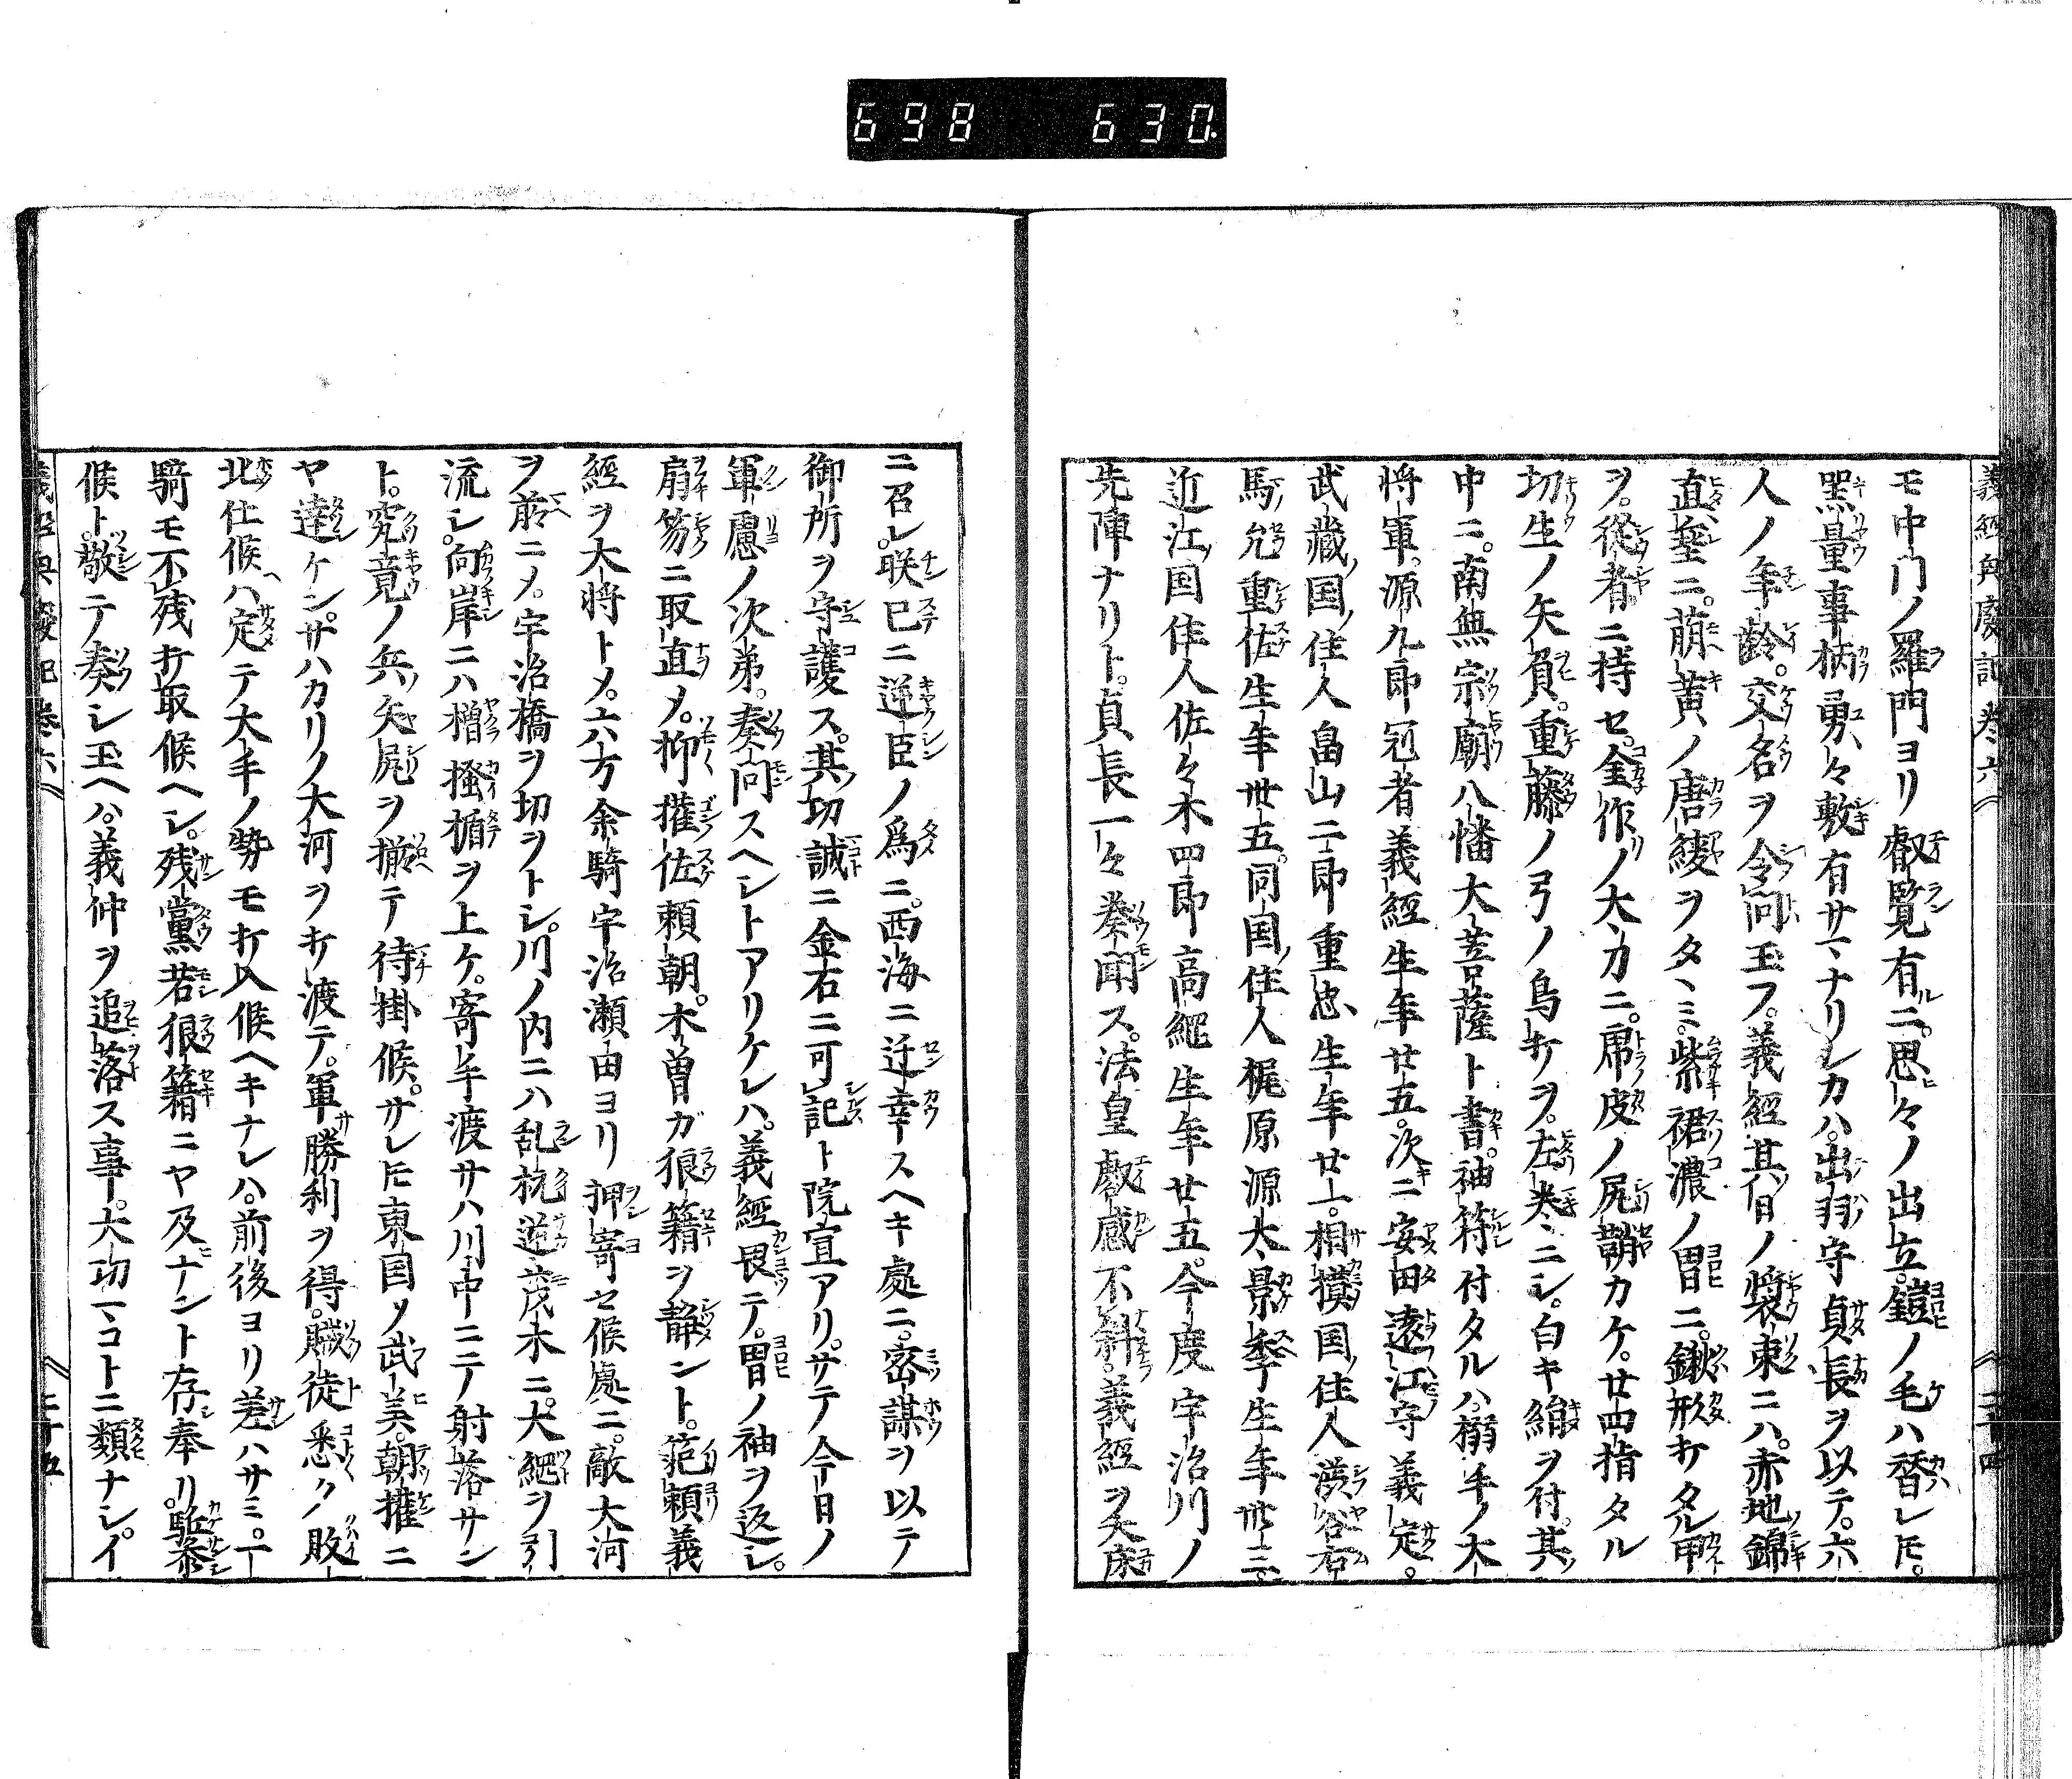 698 630
義經興廢記卷六 二十四
モ中門ノ羅門ヨリ叡覧有ルニ。思ヒ々々ノ出立。鎧ノ毛ハ替レ𪜈。
黒量事柄勇々敷有サマナリシカハ。出羽守貞長ヲ以テ。六
人ノ年齢。交名ヲ令問玉フ。義經其日ノ裝束ニハ。赤地錦
直垂ニ。萠黄ノ唐綾ヲタヽミ。紫裾濃ノ冑ニ。鍬形打タル甲
ヲ。從者ニ持セ。金作ノ大刀ニ。虎皮ノ尻鞘カケ。廿四指タル
切生ノ矢負。重藤ノ弓ノ鳥打ヲ。左巻ニシ。白キ絹ヲ付。其
中ニ。南無宗廟八幡大菩薩ト書。袖符付タルハ。搦手ノ大
將軍。源九郎冠者義經生年廿五。次ニ安田遠江守義定。
武藏国住人畠山二郎重忠生年廿一。相摸国住人渋谷右
馬允重佐生年丗五。同国住人梶原源太景季生年丗三。
近江国住人佐々木四郎高綱生年廿五。今度宇治川ノ
先陣ナリト。貞長一々奏聞ス。法皇叡感不斜。義經ヲ矢床
ニ召レ。朕已ニ逆臣ノ爲ニ。西海ニ迁幸スヘキ處ニ。密謀ヲ以テ
御所ヲ守護ス。其切誠ニ金石ニ可記ト院宣アリ。サテ今日ノ
軍慮ノ次弟。奏問スヘシトアリケレハ。義經畏テ。冑ノ袖ヲ返シ。
扇笏ニ取直メ。抑權佐頼朝。木曽ガ狼籍ヲ静ント。範頼義
經ヲ大將トメ。六万余騎宇治瀬田ヨリ押寄セ候處ニ。敵大河
ヲ前ニメ。宇治橋ヲ切ヲトシ。川ノ内ニハ乱杭逆茂木ニ。大綱ヲ引
流シ。向岸ニハ櫓掻楯ヲ上ケ。寄手渡サハ川中ニテ射落サン
ト。究竟ノ兵矢尻ヲ揃テ待掛候。サレ𪜈東国ノ武美。朝權ニ
ヤ達ケン。サハカリノ大河ヲ打渡テ。軍勝利ヲ得。賊徒悉クノ敗
北仕候ヘハ定テ大手ノ勢モ打入候ヘキナレハ。前後ヨリ差ハサミ。一
騎モ不残打取候ヘシ。残黨若狼籍ニヤ及ナント存奉リ。馳參
候ト。敬テ奏シ玉ヘハ。義仲ヲ追落ス事。大功マコトニ類ナシ。イ